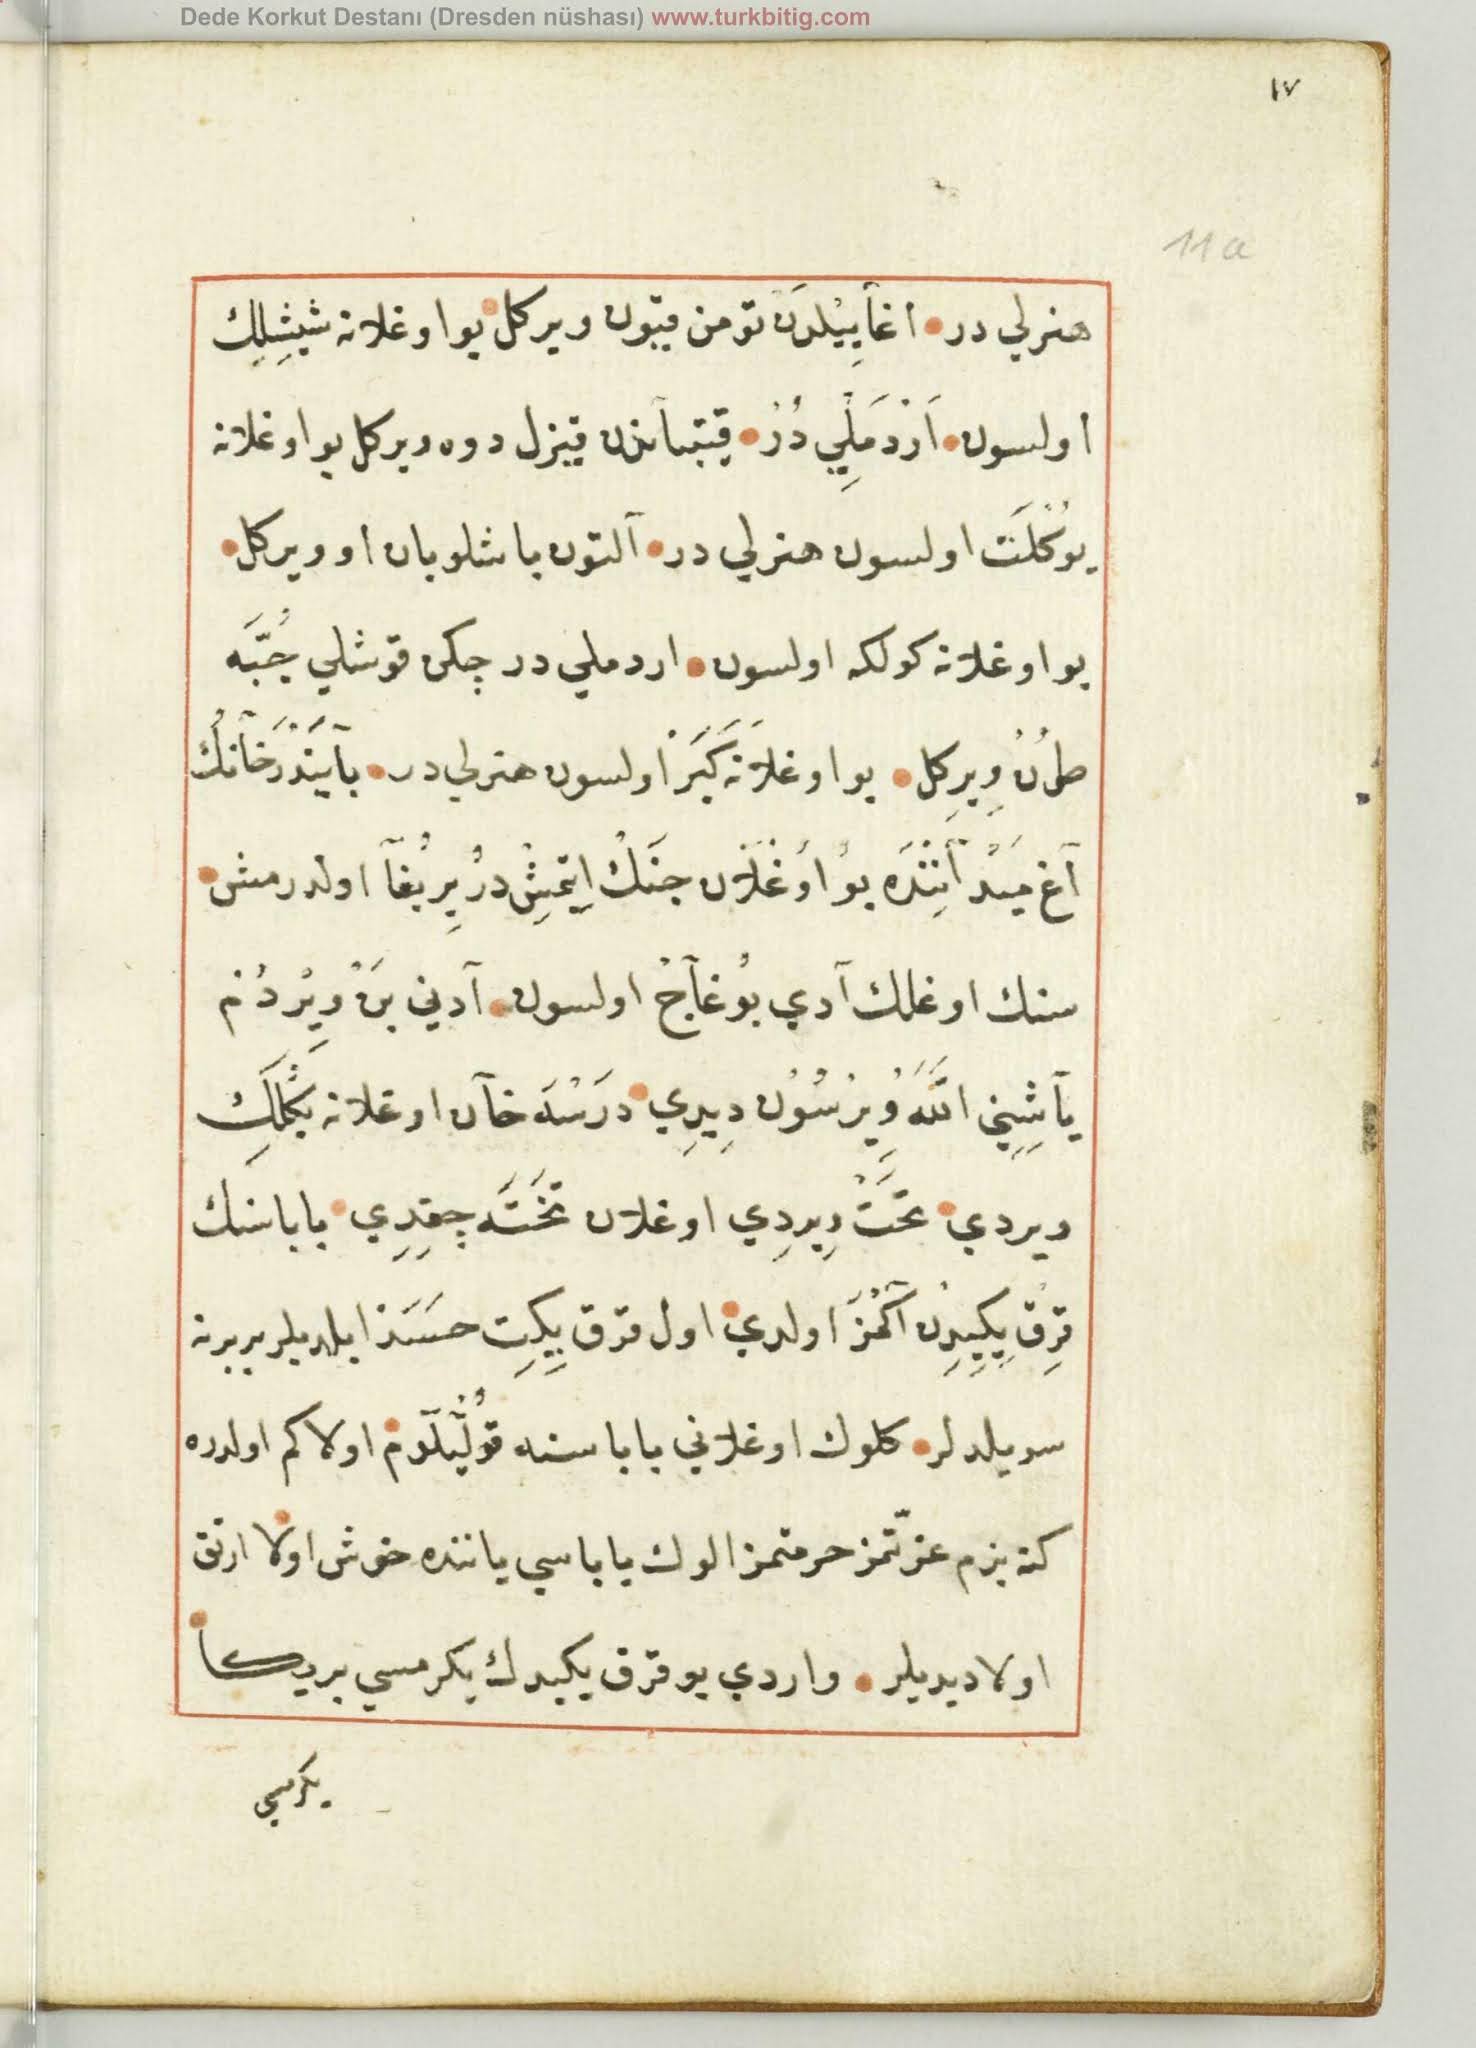 Dede Korkut Destanı (Dresden nüshası) www.turkbitig.com
١٧
11a
هنرلي در اغاَيِيْلدَن تومن قيون ويركل بو اوغلانه شيشِلِك
اولسون اَرْدَمْلِي دُرْ قيتباندن قيزل دوه ويركل بو اوغلانه
يوُكْلَتْ اولسون هنرلي در آلتون باشلو بان او ويركل
بو اوغلانه كولكه اولسون اردملي در چكن قوشلي جُبَّه
طُنْ وِيرِكل بو اوغلانه كَيَرْ اولسون هنرلي در بآيَنْدَرْ خآنُكْ
آغ ميدآنِنْدَه بوُ اوُغْلآن جنَكْ ايتْمِشْ دُرْ بِرْ بُغآ اولدرمش
سنك اوغلك آدي بُوغآجْ اولسون آديني بَنْ وِيْرْدُمْ
يآشِيِني اللَّه وِيرْسُوُن دِيدِي دَرْسَه خآن اوغلانه بَكْلِكْ
ويردي تَخْتْ وِيردِي اوغلان تَخْتَه چِقِدِي باباسنك
قِرِقْ يِكِيدِنْ آكْمَزْ اولدي اول قرق يِكِت حَسَدْ ايلديلر بربرنه
سويلدلر كلوك اوغلاني باباسنه قوُلَيَلُوم اولا كم اولدره
كنه بزم عزّتمز حرمتمز الوك باباسي ياننده خوش اولا ارتق
اولا ديديلر واردي بو قرق يكيدك يكرمسي بر يكا
يكرمي